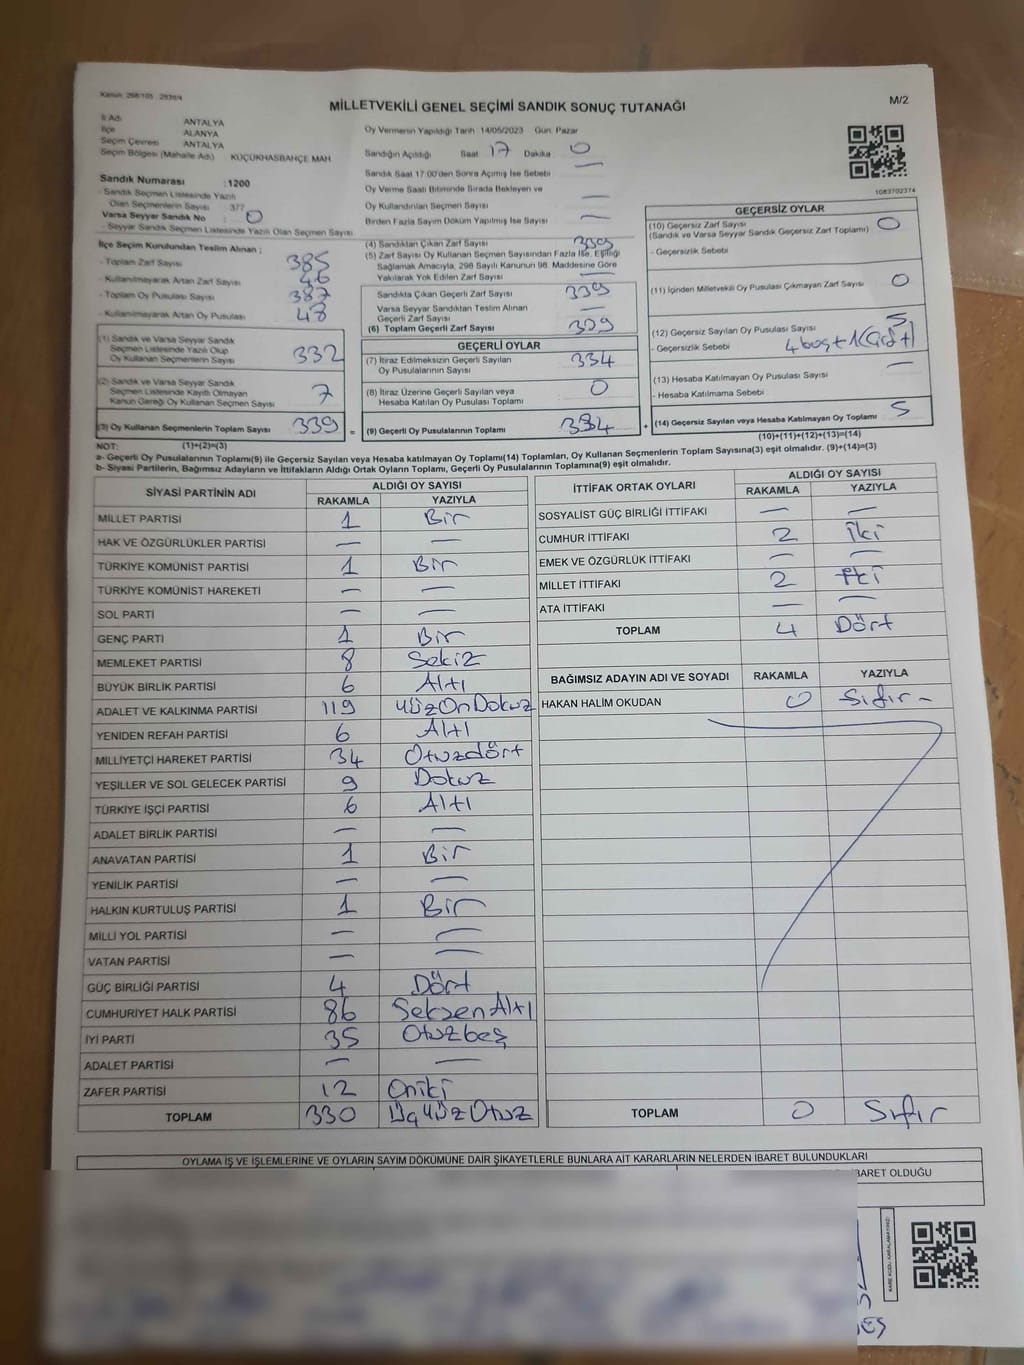 Kanun: 298/105 2839/4
MİLLETVEKİLİ GENEL SEÇİMİ SANDIK SONUÇ TUTANAĞI
M/2
İl Adı ANTALYA
İlçe ALANYA
Seçim Çevresi ANTALYA
Seçim Bölgesi (Mahalle Adı) KÜÇÜKHASBAHÇE MAH
Sandık Numarası :1200
- Sandık Seçmen Listesinde Yazılı
Olan Seçmenlerin Sayısı : 377
Varsa Seyyar Sandık No : 0
- Seyyar Sandık Seçmen Listesinde Yazılı Olan Seçmen Sayısı
Oy Vermenin Yapıldığı Tarih 14/05/2023 Gün: Pazar
Sandığın Açıldığı Saat 17 Dakika 0
Sandık Saat 17:00'den Sonra Açılmış İse Sebebi —
Oy Verme Saati Bitiminde Sırada Bekleyen ve
Oy Kullandırılan Seçmen Sayısı —
Birden Fazla Sayım Döküm Yapılmış İse Sayısı —
1083702374
İlçe Seçim Kurulundan Teslim Alınan ;
- Toplam Zarf Sayısı 385
- Kullanılmayarak Artan Zarf Sayısı 46
- Toplam Oy Pusulası Sayısı 387
- Kullanılmayarak Artan Oy Pusulası 48
(1) Sandık ve Varsa Seyyar Sandık
Seçmen Listesinde Yazılı Olup
Oy Kullanan Seçmenlerin Sayısı 332
(2) Sandık ve Varsa Seyyar Sandık
Seçmen Listesinde Kayıtlı Olmayan
Kanun Gereği Oy Kullanan Seçmen Sayısı 7
(3) Oy Kullanan Seçmenlerin Toplam Sayısı 339 =
(4) Sandıktan Çıkan Zarf Sayısı 339
(5) Zarf Sayısı Oy Kullanan Seçmen Sayısından Fazla İse, Eşitliği
Sağlamak Amacıyla, 298 Sayılı Kanunun 98. Maddesine Göre
Yakılarak Yok Edilen Zarf Sayısı —
Sandıkta Çıkan Geçerli Zarf Sayısı 339
Varsa Seyyar Sandıktan Teslim Alınan
Geçerli Zarf Sayısı —
(6) Toplam Geçerli Zarf Sayısı 339
GEÇERLİ OYLAR
(7) İtiraz Edilmeksizin Geçerli Sayılan
Oy Pusulalarının Sayısı 334
(8) İtiraz Üzerine Geçerli Sayılan veya
Hesaba Katılan Oy Pusulası Toplamı 0
(9) Geçerli Oy Pusulalarının Toplamı 334 +
GEÇERSİZ OYLAR
(10) Geçersiz Zarf Sayısı 0
(Sandık ve Varsa Seyyar Sandık Geçersiz Zarf Toplamı)
- Geçersizlik Sebebi
(11) İçinden Milletvekili Oy Pusulası Çıkmayan Zarf Sayısı 0
(12) Geçersiz Sayılan Oy Pusulası Sayısı 5
- Geçersizlik Sebebi 4 boş + 1
(13) Hesaba Katılmayan Oy Pusulası Sayısı —
- Hesaba Katılmama Sebebi
(14) Geçersiz Sayılan veya Hesaba Katılmayan Oy Toplamı 5
NOT: (1)+(2)=(3)
(10)+(11)+(12)+(13)=(14)
a- Geçerli Oy Pusulalarının Toplamı(9) ile Geçersiz Sayılan veya Hesaba katılmayan Oy Toplamı(14) Toplamları, Oy Kullanan Seçmenlerin Toplam Sayısına(3) eşit olmalıdır. (9)+(14)=(3)
b- Siyasi Partilerin, Bağımsız Adayların ve İttifakların Aldığı Ortak Oyların Toplamı, Geçerli Oy Pusulalarının Toplamına(9) eşit olmalıdır.
SİYASİ PARTİNİN ADI ALDIĞI OY SAYISI
RAKAMLA YAZIYLA
MİLLET PARTİSİ 1 Bir
HAK VE ÖZGÜRLÜKLER PARTİSİ — —
TÜRKİYE KOMÜNİST PARTİSİ 1 Bir
TÜRKİYE KOMÜNİST HAREKETİ — —
SOL PARTİ — —
GENÇ PARTİ 1 Bir
MEMLEKET PARTİSİ 8 Sekiz
BÜYÜK BİRLİK PARTİSİ 6 Altı
ADALET VE KALKINMA PARTİSİ 119 YüzOnDokuz
YENİDEN REFAH PARTİSİ 6 Altı
MİLLİYETÇİ HAREKET PARTİSİ 34 Otuzdört
YEŞİLLER VE SOL GELECEK PARTİSİ 9 Dokuz
TÜRKİYE İŞÇİ PARTİSİ 6 Altı
ADALET BİRLİK PARTİSİ — —
ANAVATAN PARTİSİ 1 Bir
YENİLİK PARTİSİ — —
HALKIN KURTULUŞ PARTİSİ 1 Bir
MİLLİ YOL PARTİSİ — —
VATAN PARTİSİ — —
GÜÇ BİRLİĞİ PARTİSİ 4 Dört
CUMHURİYET HALK PARTİSİ 86 SeksenAltı
İYİ PARTİ 35 Otuzbeş
ADALET PARTİSİ — —
ZAFER PARTİSİ 12 Oniki
TOPLAM 330 ÜçyüzOtuz
İTTİFAK ORTAK OYLARI ALDIĞI OY SAYISI
RAKAMLA YAZIYLA
SOSYALİST GÜÇ BİRLİĞİ İTTİFAKI — —
CUMHUR İTTİFAKI 2 İki
EMEK VE ÖZGÜRLÜK İTTİFAKI — —
MİLLET İTTİFAKI 2 İki
ATA İTTİFAKI — —
TOPLAM 4 Dört
BAĞIMSIZ ADAYIN ADI VE SOYADI RAKAMLA YAZIYLA
HAKAN HALİM OKUDAN 0 Sıfır -
TOPLAM 0 Sıfır
OYLAMA İŞ VE İŞLEMLERİNE VE OYLARIN SAYIM DÖKÜMÜNE DAİR ŞİKAYETLERLE BUNLARA AİT KARARLARIN NELERDEN İBARET BULUNDUKLARI
İBARET OLDUĞU
KARE KODU KARALAMAYINIZ!